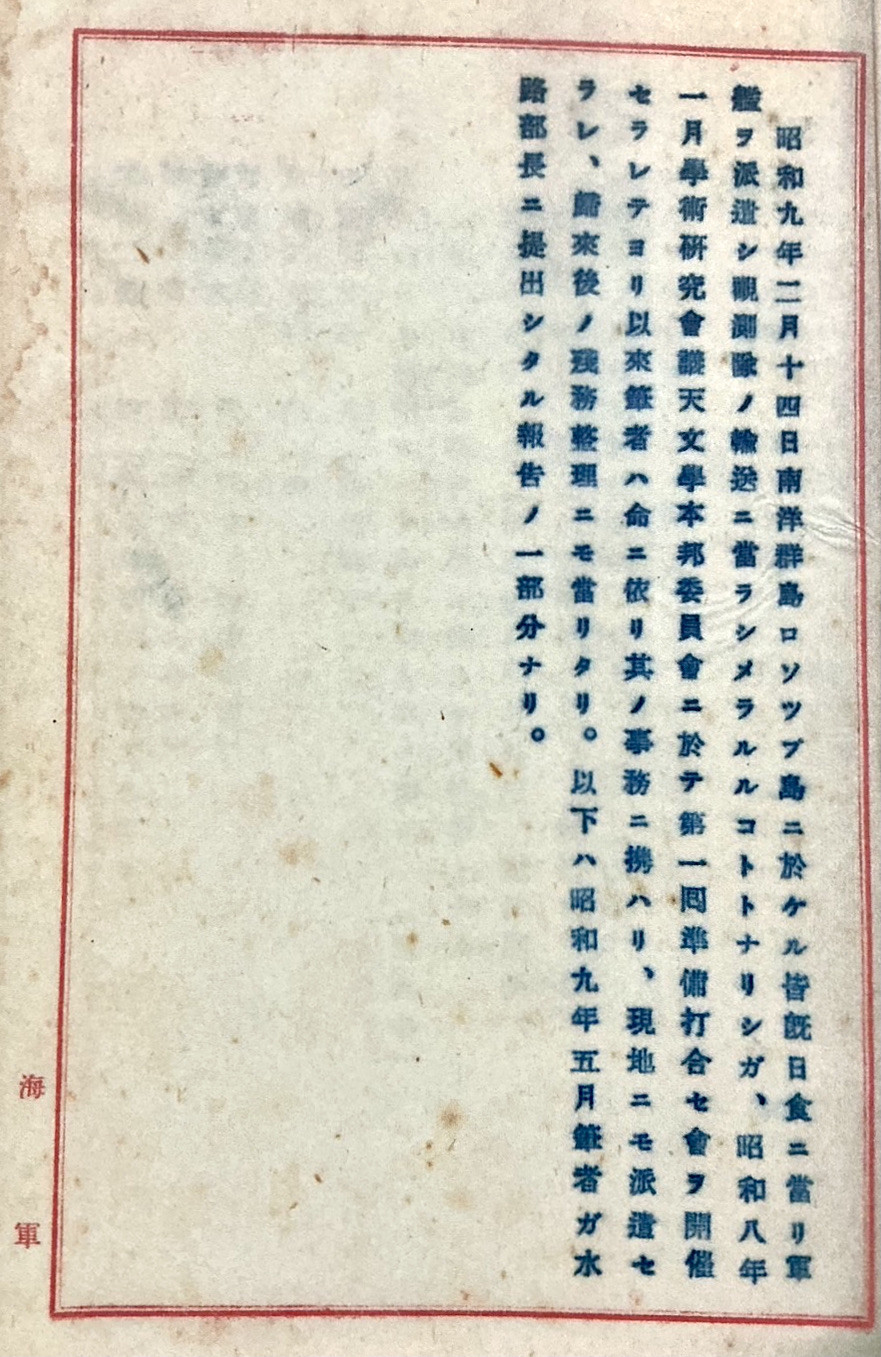 昭和九年二月十四日南洋群島ロソツプ島ニ於ケル皆既日食ニ當リ軍
艦ヲ派遣シ觀測隊ノ輸送ニ當ラシメラルルコトトナリシガ、昭和八年
一月學術研究會議天文學本邦委員會ニ於テ第一囘準備打合セ會ヲ開催
セラレテヨリ以來筆者ハ命ニ依リ其ノ事務ニ携ハリ、現地ニモ派遣セ
ラレ、歸來後ノ殘務整理ニモ當リタリ。以下ハ昭和九年五月筆者ガ水
路部長ニ提出シタル報告ノ一部分ナリ。
海軍